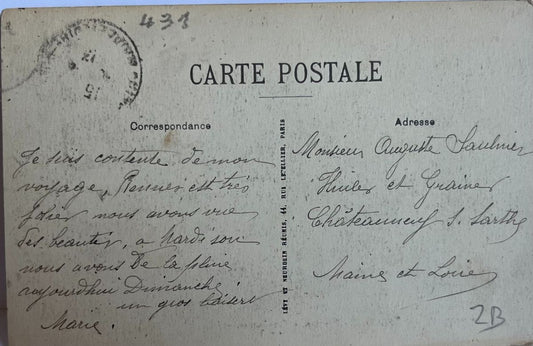 431
CARTE POSTALE
Correspondance
Adresse
Je suis contente de mon
voyage, Rennes est très
jolie, nous avons vue
des beautés, a Mardi soir
nous avons de la pluie
aujourdhui Dimanche
un gros baisers
Marie.
LÉVY ET NEURDEIN RÉUNIS, 44, RUE LETELLIER, PARIS
Monsieur Auguste Saulnier
Huiles et Graines
Châteauneuf s. Sarthe
Maine et Loire
2B